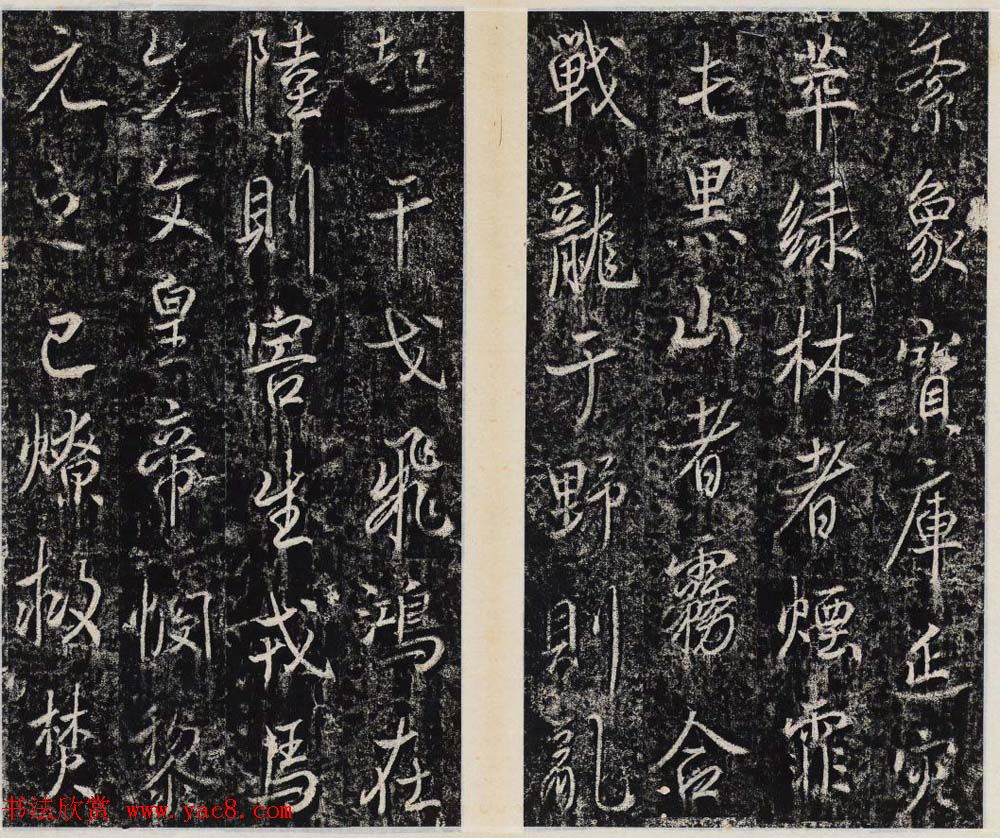 紊象寶庫延灾
萃綠林者煙霏
屯黑山者霧合
戰龍于野則亂
起干戈飛鴻在
陸則害生戎馬
先文皇帝憫黎
元之已燎救焚
书法欣赏 www.yac8.com